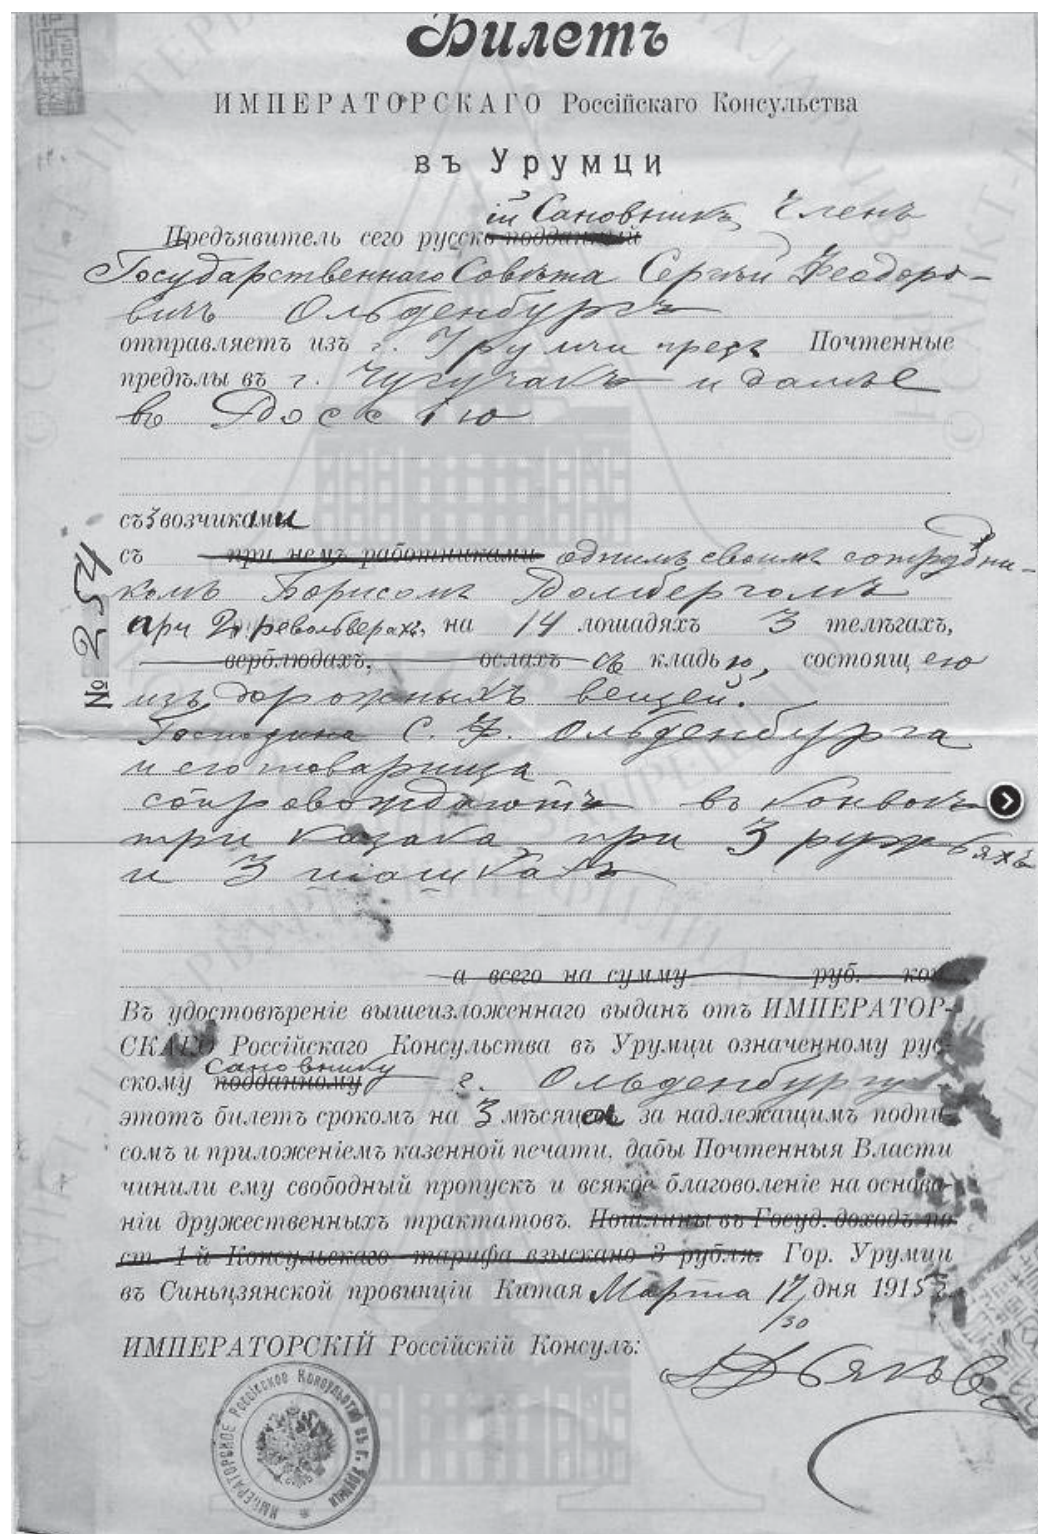 Билетъ
ИМПЕРАТОРСКАГО Россійскаго Консульства
въ Урумци
ій Сановникъ, Членъ
Предъявитель сего русско подданный
Государственнаго Совѣта Сергѣй Феодоро-
вичъ Ольденбургъ
отправляетъ изъ г. Урумчи чрезъ Почтенные
предѣлы въ г. Чугучакъ и далѣе
въ Россію
съ 3 возчиками
съ при немъ работниками однимъ своимъ сотрудни-
комъ Борисомъ Ромбергомъ
№ 254
при 2х револьверахъ, на 14 лошадяхъ 3 телѣгахъ,
верблюдахъ, ослахъ съ кладью, состоящею
изъ дорожныхъ вещей.
Господина С. Ф. Ольденбурга
и его товарища
сопровождаютъ въ конвоѣ
три казака при 3 ружьяхъ
и 3 шашкахъ
а всего на сумму руб. коп
Въ удостовѣреніе вышеизложеннаго выданъ отъ ИМПЕРАТОР-
СКАГО Россійскаго Консульства въ Урумци означенному рус-
сановнику
скому подданному г. Ольденбургу
этотъ билетъ срокомъ на 3 мѣсяца за надлежащимъ подпи
сомъ и приложеніемъ казенной печати, дабы Почтенныя Власти
чинили ему свободный пропускъ и всякое благоволеніе на основа-
ніи дружественныхъ трактатовъ. Пошлины въ Госуд. доходъ по
ст. 1-й Консульскаго тарифа взыскано 3 рубля. Гор. Урумци
въ Синьцзянской провинціи Китая Марта 17 дня 1915 г.
/30
ИМПЕРАТОРСКІЙ Россійскій Консулъ:
Дьяковъ
ИМПЕРАТОРСКОЕ Россійское Консульство въ г. Урумци